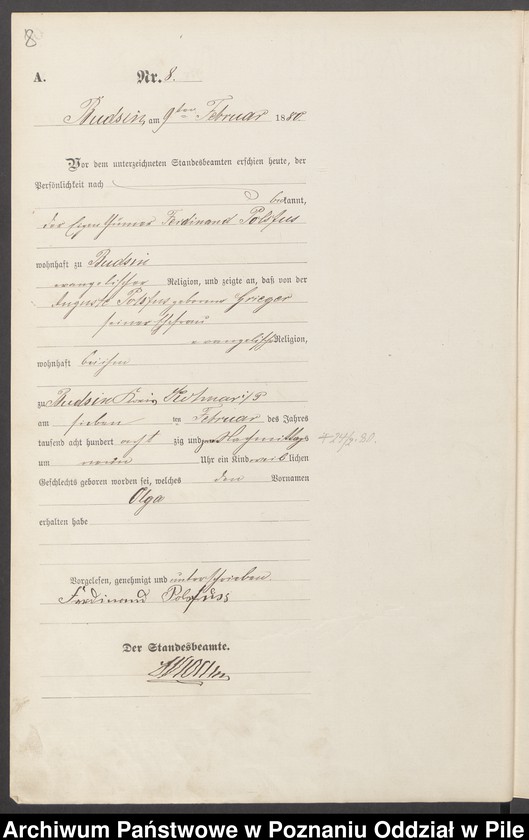 8
A. Nr. 8.
Budsin, am 9ten Februar 1880.
Vor dem unterzeichneten Standesbeamten erschien heute, der
Persönlichkeit nach
bekannt,
der Eigenthümer Ferdinand Polsfus
wohnhaft zu Budsin
evangelischer Religion, und zeigte an, daß von der
Auguste Polsfus geborene Grieger
seiner Ehefrau
evangelischer Religion,
wohnhaft bei ihm
zu Budsin Kreis Kolmar i/P
am sieben ten Februar des Jahres
tausend acht hundert acht zig und Nachmittags
um neun Uhr ein Kind weiblichen
Geschlechts geboren worden sei, welches den Vornamen
Olga
erhalten habe
Vorgelesen, genehmigt und unterschrieben
Ferdinand Polsfuss
Der Standesbeamte.
Archiwum Państwowe w Poznaniu Oddział w Pile